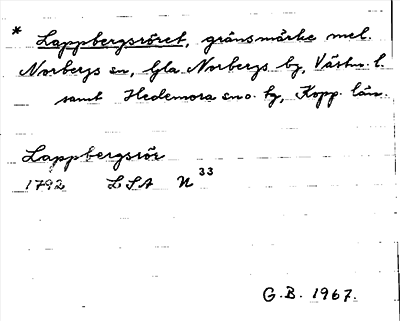 * Lappbergsröret, gränsmärke mel.
Norbergs sn, Gla Norbergs bg, Västm. l.
samt Hedemora sn o. tg, Kopp. län.
Lappbergsrör
1792 LSA N 33
G.B. 1967.